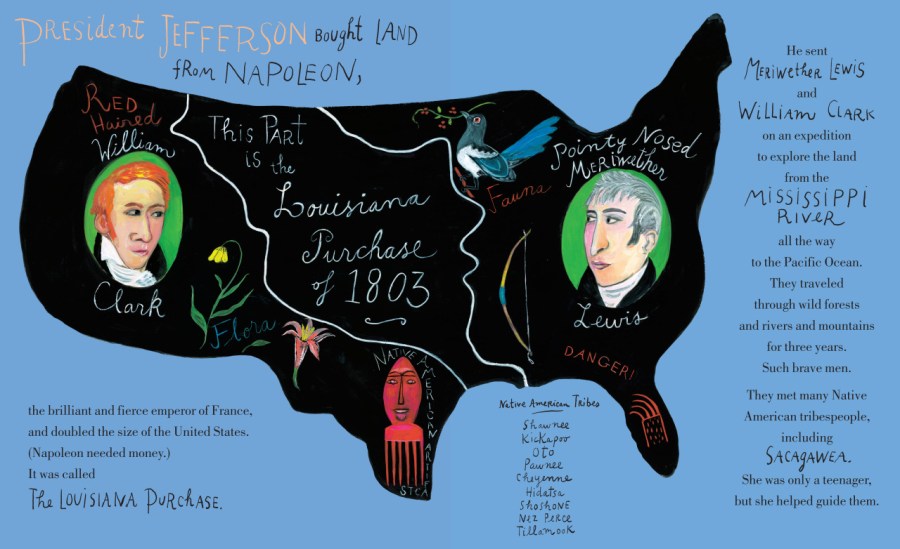 PRESIDENT JEFFERSON BOUGHT LAND
FROM NAPOLEON,
RED
Haired
William
Clark
This Part
is the
Louisiana
Purchase
of 1803
Flora
Fauna
Pointy Nosed
Meriwether
Lewis
DANGER!
NATIVE AMERICAN ARTIFACTS
the brilliant and fierce emperor of France,
and doubled the size of the United States.
(Napoleon needed money.)
It was called
The LOUISIANA PURCHASE.
Native American Tribes
Shawnee
Kickapoo
Oto
Pawnee
Cheyenne
Hidatsa
Shoshone
Nez Perce
Tillamook
He sent
MERIWETHER LEWIS
and
WILLIAM CLARK
on an expedition
to explore the land
from the
MISSISSIPPI
RIVER
all the way
to the Pacific Ocean.
They traveled
through wild forests
and rivers and mountains
for three years.
Such brave men.
They met many Native
American tribespeople,
including
SACAGAWEA.
She was only a teenager,
but she helped guide them.